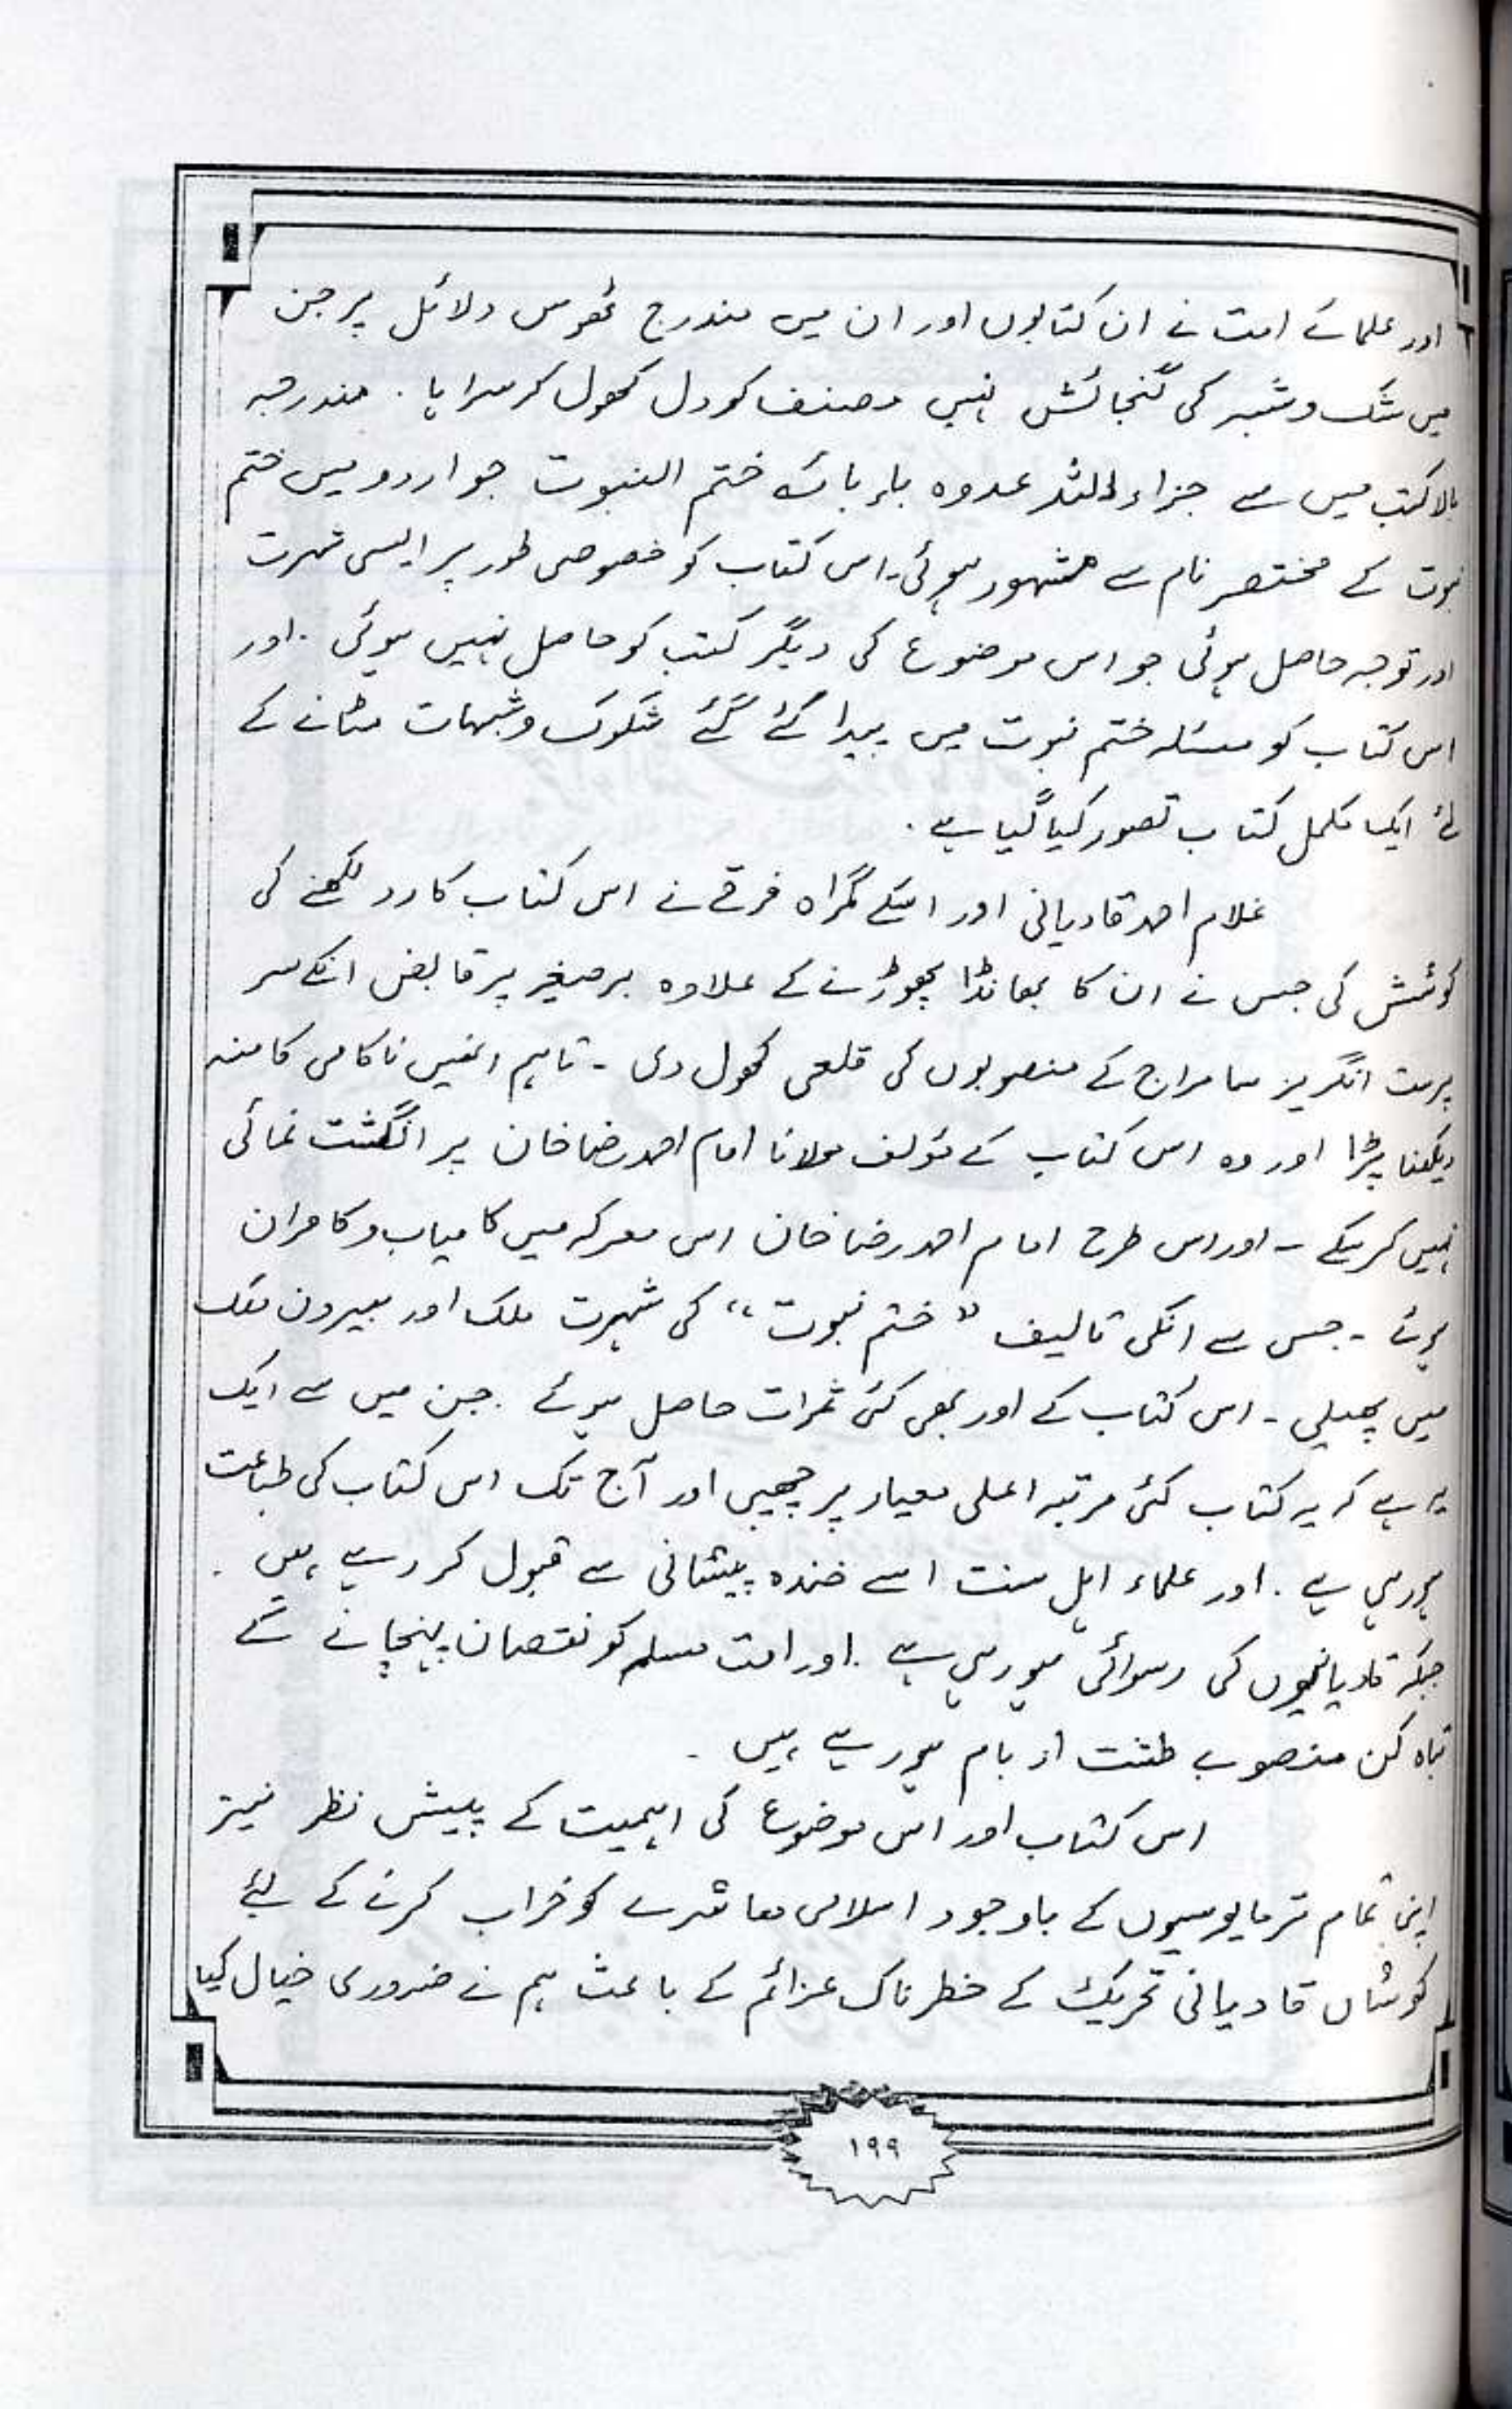 اور علمائے امت نے ان کتابوں اور ان میں مندرج ٹھوس دلائل پر جن
میں شک و شبہ کی گنجائش نہیں مصنف کو دل کھول کر سراہا ۔ مندرجہ
بالا کتب میں سے جزاء اللہ عدوہ بابائہ ختم النبوت جو اردو میں ختم
نبوت کے مختصر نام سے مشہور ہوئی۔ اس کتاب کو خصوصی طور پر ایسی شہرت
اور توجہ حاصل ہوئی جو اس موضوع کی دیگر کتب کو حاصل نہیں ہوئی ۔ اور
اس کتاب کو مسئلہ ختم نبوت میں پیدا کئے گئے شکوک و شبہات مٹانے کے
لئے ایک مکمل کتاب تصور کیا گیا ہے ۔
غلام احمد قادیانی اور اسکے گمراہ فرقے نے اس کتاب کا رد لکھنے کی
کوشش کی جس نے ان کا بھانڈا پھوڑنے کے علاوہ برصغیر پر قابض انکے سر
پرست انگریز سامراج کے منصوبوں کی قلعی کھول دی ۔ تاہم انھیں ناکامی کا منہ
دیکھنا پڑا اور وہ اس کتاب کے مؤلف مولانا امام احمد رضا خان پر انگشت نمائی
نہیں کر سکے ۔ اور اس طرح امام احمد رضا خان اس معرکہ میں کامیاب و کامران
ہوئے ۔ جس سے انکی تالیف "ختم نبوت" کی شہرت ملک اور بیرون ملک
میں پھیلی ۔ اس کتاب کے اور بھی کئی ثمرات حاصل ہوئے ۔ جن میں سے ایک
یہ ہے کہ یہ کتاب کئی مرتبہ اعلی معیار پر چھپی اور آج تک اس کتاب کی طباعت
ہو رہی ہے ۔ اور علماء اہل سنت اسے خندہ پیشانی سے قبول کر رہے ہیں ۔
جبکہ قادیانیوں کی رسوائی ہو رہی ہے ۔ اور امت مسلمہ کو نقصان پہنچانے کے
تباہ کن منصوبے طشت از بام ہو رہے ہیں ۔
اس کتاب اور اس موضوع کی اہمیت کے پیش نظر نیز
اپنی تمام تر مایوسیوں کے باوجود اسلامی معاشرے کو خراب کرنے کے لئے
کوشاں قادیانی تحریک کے خطرناک عزائم کے باعث ہم نے ضروری خیال کیا
۱۹۹